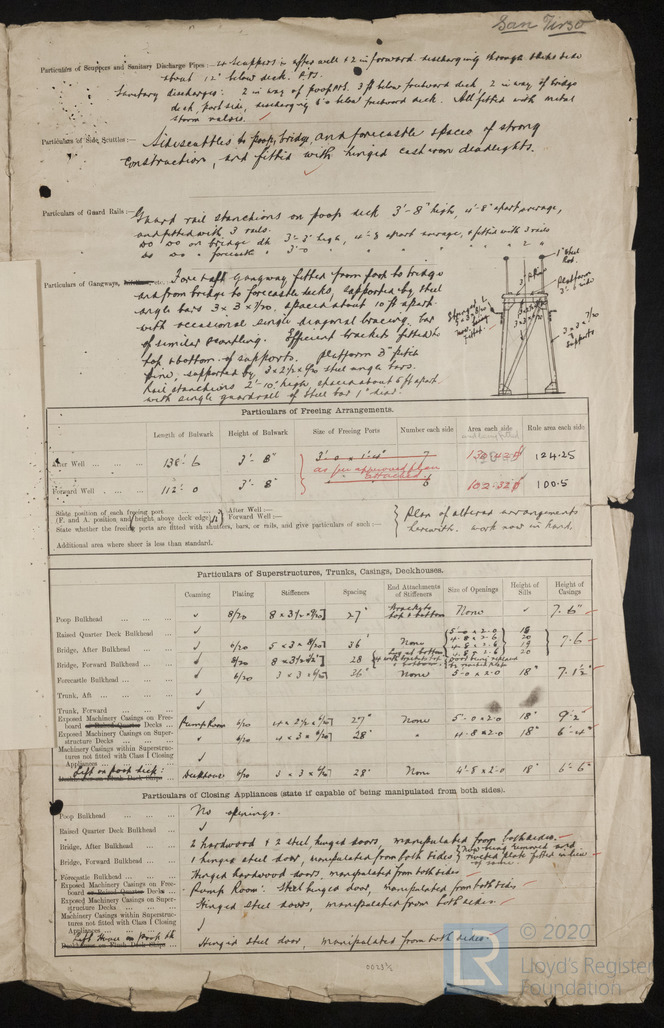 San Tirso
Particulars of Scuppers and Sanitary Discharge Pipes :— 4 Scuppers in after well & 2 in forward discharging through ship's side
about 12" below deck. P.S.
Sanitary discharges: 2 in way of poop P.S. 3 ft below freeboard deck, 2 in way of bridge
deck, port side, discharging below freeboard deck. All fitted with metal
storm valves.
Particulars of Side Scuttles :— Sidescuttles to poop, bridge, and forecastle spaces of strong
construction, and fitted with hinged cast iron deadlights.
Particulars of Guard Rails :— Guard rail stanchions on poop deck 3'-8" high, 4'-8" apart average,
and fitted with 3 rails.
do do on bridge dk 3'-3" high, 4'-8 apart average, & fitted with 3 rails
do do " forecastle " 3'-0 " " " " " " 2 "
Particulars of Gangways, etc. Fore & aft Gangway fitted from poop to bridge
and from bridge to forecastle decks, supported by steel
angle bars 3 x 3 x 7/20, spaced about 10 ft apart
with occasional single diagonal bracing bar
of similar scantling. Efficient brackets fitted to
top & bottom of supports. Platform 3" pitch
pine, supported by 3 x 2½ x 6/20 steel angle bars.
Rail stanchions 2'-10" high, spaced about 5 ft apart.
with single guard rail of steel bar 1" dia.
1" Steel
Rod.
Platform
3 x 3 x 7/20
Supports
Particulars of Freeing Arrangements.
Length of Bulwark Height of Bulwark Size of Freeing Ports Number each side Area each side Rule area each side
After Well 138'-6 3'-8" 3'-0 x 1'-4" 7 124.25
as per approved plan
attached
Forward Well 112'-0 3'-8" 6 102.32 100.5
State position of each freeing port After Well :—
(F. and A. position and height above deck edge) Forward Well :—
Plan of altered arrangements
State whether the freeing ports are fitted with shutters, bars, or rails, and give particulars of such :— herewith. Work now in hand.
Additional area where sheer is less than standard.
Particulars of Superstructures, Trunks, Casings, Deckhouses.
Coaming Plating Stiffeners Spacing End Attachments of Stiffeners Size of Openings Height of Sills Height of Casings
Poop Bulkhead 8/20 8 x 3½ x 27" Brackets top & bottom None 7'-6"
Raised Quarter Deck Bulkhead
Bridge, After Bulkhead 6/20 5 x 3 x 8/20 36" None 5-0 x 2-0 18
4-8 x 2-6 20
4-8 x 2-6 19
4-8 x 2-6 20
7-6
Bridge, Forward Bulkhead 8/20 8 x 3½ x 28
Forecastle Bulkhead 6/20 3 x 3 x 6/20 36" None 5-0 x 2-0 18" 7'-1½"
Trunk, Aft
Trunk, Forward
Exposed Machinery Casings on Free-
board or Raised Quarter Decks Pump Room 6/20 4 x 2½ x 6/20 27" None 5-0 x 2-0 18" 9'-2"
Exposed Machinery Casings on Super-
structure Decks " 6/20 4 x 3 x 8/20 28" " 4-8 x 2-0 18" 6'-4"
Machinery Casings within Superstruc-
tures not fitted with Class I Closing
Appliances
Deckhouse 6/20 3 x 3 x 6/20 28" None 4'-8 x 2-0 18" 6'-6"
Particulars of Closing Appliances (state if capable of being manipulated from both sides).
Poop Bulkhead No openings.
Raised Quarter Deck Bulkhead
Bridge, After Bulkhead 2 hardwood & 2 steel hinged doors, manipulated from both sides.
Bridge, Forward Bulkhead 1 hinged steel door, manipulated from both sides } now being removed and
riveted plate fitted in lieu
of same.
Forecastle Bulkhead Hinged hardwood doors, manipulated from both sides
Exposed Machinery Casings on Free-
board or Raised Quarter Decks Pump Room: Steel hinged door, manipulated from both sides
Exposed Machinery Casings on Super-
structure Decks Hinged steel doors, manipulated from both sides
Machinery Casings within Superstruc-
tures not fitted with Class I Closing
Appliances
Hinged steel door, manipulated from both sides
0023½
© 2020
LR
Lloyd's Register
Foundation